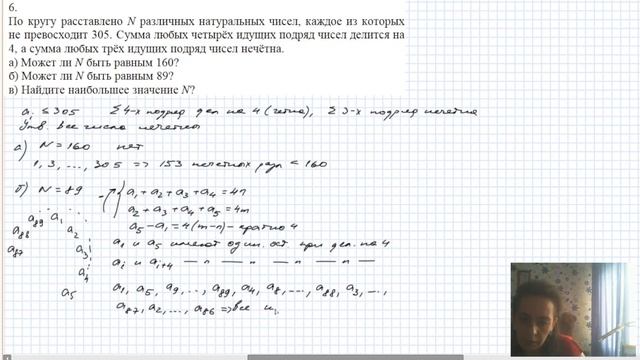 6.
По кругу расставлено N различных натуральных чисел, каждое из которых
не превосходит 305. Сумма любых четырёх идущих подряд чисел делится на
4, а сумма любых трёх идущих подряд чисел нечётна.
а) Может ли N быть равным 160?
б) Может ли N быть равным 89?
в) Найдите наибольшее значение N?
aᵢ ≤ 305 Σ 4-х подряд дел на 4 (четна), Σ 3-х подряд нечетна
Утв. все числа нечетны
а) N = 160 нет
1, 3, ..., 305 => 153 нечетных разл < 160
б) N = 89
a₁ + a₂ + a₃ + a₄ = 4n
a₂ + a₃ + a₄ + a₅ = 4m
a₅ - a₁ = 4(m-n) - кратно 4
a₁ и a₅ имеют один. ост при дел. на 4
aᵢ и aᵢ₊₄ — п — п — п — п —
a₈₉ a₁
a₈₈ a₂
a₈₇ a₃
a₄
a₅
a₁, a₅, a₉, .., a₈₉, a₄, a₈, ..., a₈₈, a₃, ...,
a₈₇, a₂, ..., a₈₆ => все